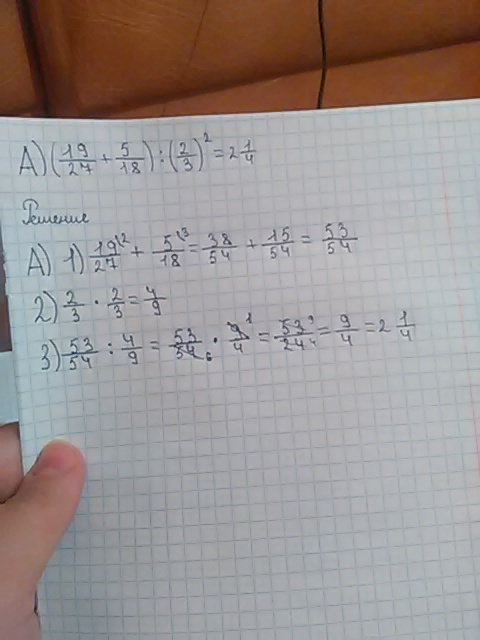 А) (19/27 + 5/18) : (2/3)² = 2 1/4
Решение
А) 1) 19\2/27 + 5\3/18 = 38/54 + 15/54 = 53/54
2) 2/3 · 2/3 = 4/9
3) 53/54 : 4/9 = 53/54 6 · 9 1/4 = 53 9/24 4 = 9/4 = 2 1/4